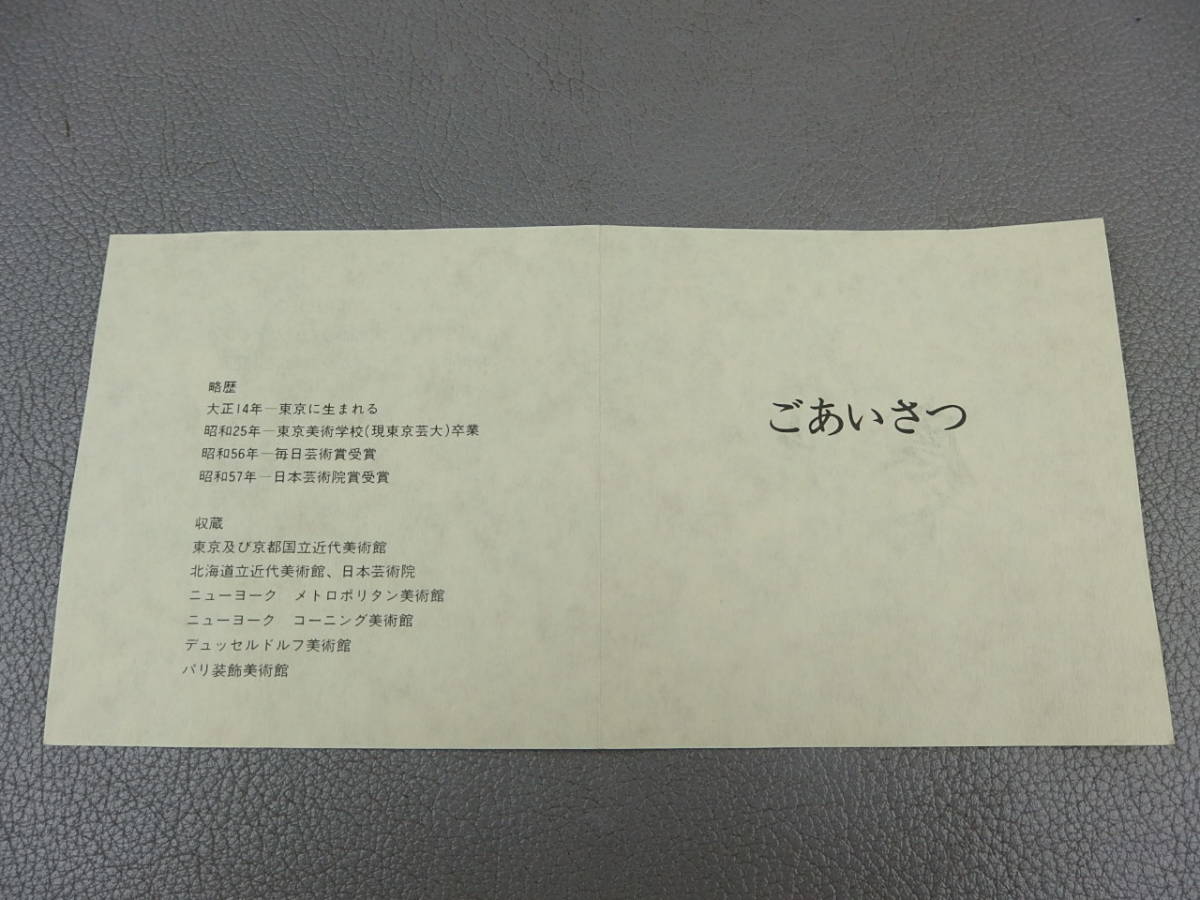 略歴
大正14年―東京に生まれる
昭和25年―東京美術学校(現東京芸大)卒業
昭和56年―毎日芸術賞受賞
昭和57年―日本芸術院賞受賞
収蔵
東京及び京都国立近代美術館
北海道立近代美術館、日本芸術院
ニューヨーク　メトロポリタン美術館
ニューヨーク　コーニング美術館
デュッセルドルフ美術館
パリ装飾美術館
ごあいさつ